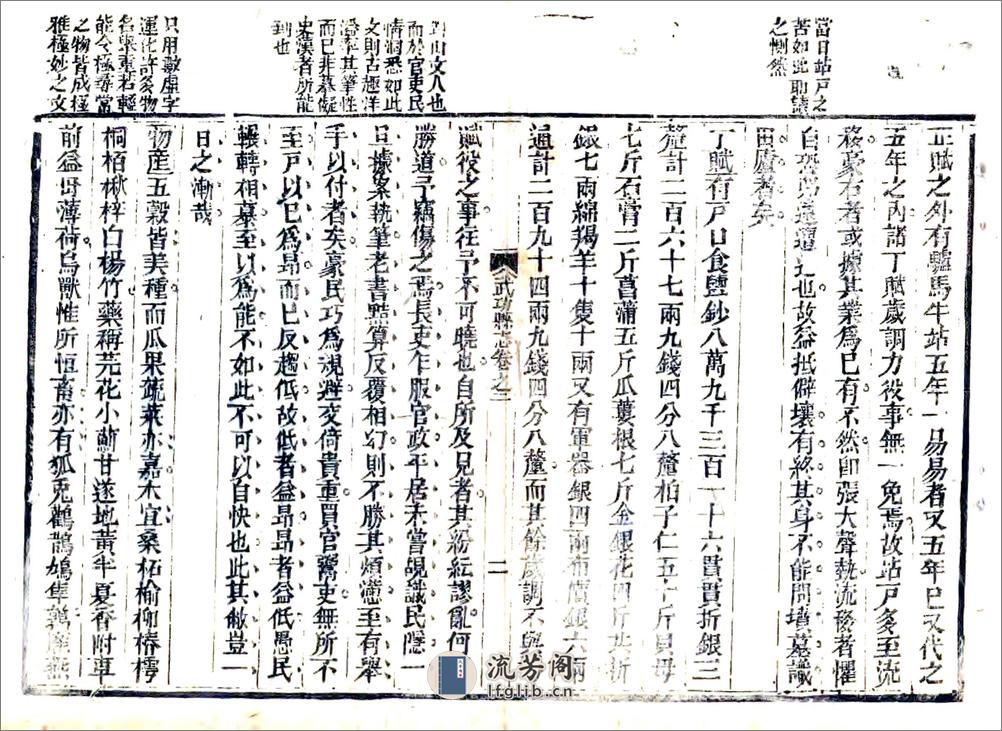 當日站戶之
苦如此耶讀
之惻然
正賦之外有驢馬牛站五年一易易者又五年已又代之
五年之內諸丁賦歲調力役事無一免焉故站戶多至流
移豪右者或據其業爲已有不然卽張大聲勢流移者懼
也故益抵僻壤有終其身不能問墳墓識
田廬者矣
丁賦有戶口食鹽鈔八萬九千三百一十六貫貫折銀三
釐計二百六十七兩九錢四分八釐柏子仁五十斤貝母
七斤石膏二斤菖蒲五斤瓜蔞根七斤金銀花四斤共折
銀七兩綿羯羊十隻十兩又有軍器銀四兩布價銀六兩
通計二百九十四兩九錢四分八釐而其餘歲調不與
武功縣志卷之二
二
山文人也
而於官吏民
情洞悉如此
文則古趣洋
溢率其筆性
而已非摹擬
史漢者所能
到也
賦役之事往予不可曉也自所及見者其紛紜謬亂何
勝道予竊傷之焉長吏乍服官政平居未嘗覩識民隱一
旦據案執筆老書黠算反覆相幻則不勝其煩懣至有舉
手以付者矣豪民巧爲規避交倚貴重買官鬻吏無所不
至戶以巳爲昂而巳反趨低故低者益昂昂者益低愚民
輾轉相慕至以爲能不如此不可以自快也此其敝豈一
日之漸哉
只用數虛字
運化許多物
名舉重若輕
能令極尋常
之物皆成極
雅極妙之文
物產五穀皆美種而瓜果蔬菜亦嘉木宜桑柘榆柳椿樗
桐栢楸梓白楊竹藥稱芫花小薊甘遂地黃半夏香附車
前益母薄荷鳥獸惟所恒畜亦有狐兎鸛鵲鳩隼鶉